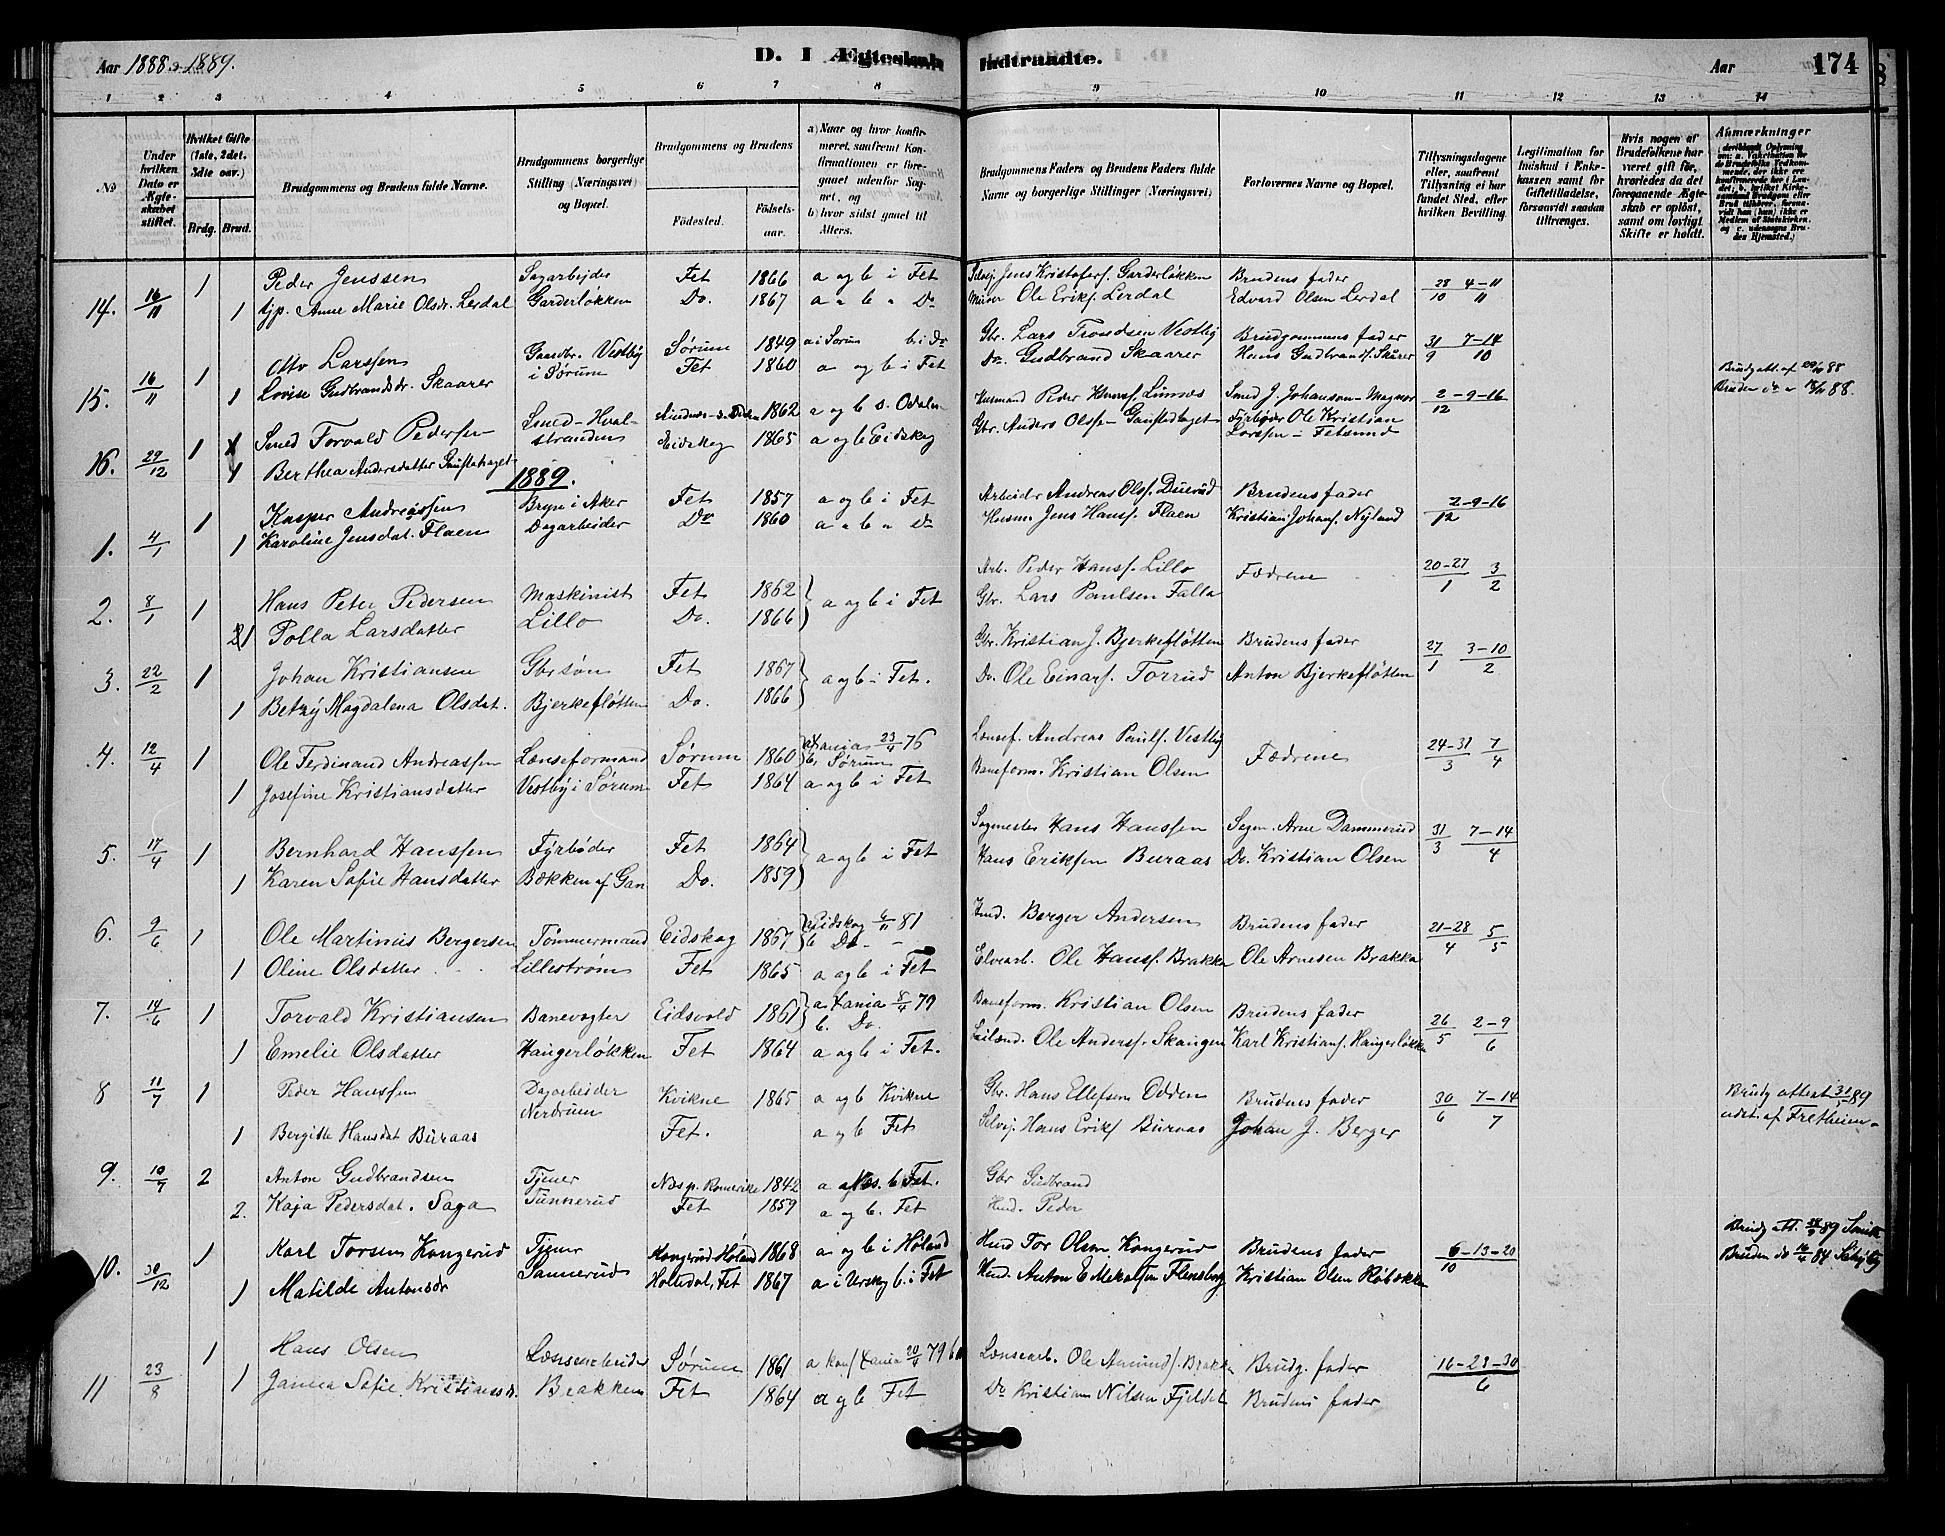 Aar 1888 & 1889.
D. I Ægteskab Indtraadte.
Aar 174
1 2 3 4 5 6 7 8 9 10 11 12 13 14
No
Under hvilken Dato er Ægteskabet stiftet.
Hvilket Gifte (1ste, 2det, 3die osv.)
Brdg. Brud.
Brudgommens og Brudens fulde Navne.
Brudgommens borgerlige Stilling (Næringsvei) og Bopæl.
Brudgommens og Brudens
Fødested. Fødselsaar.
a) Naar og hvor konfirmeret, saafremt Konfirmationen er foregaaet udenfor Sognet, og
b) hvor sidst gaaet til Alters.
Brudgommens Faders og Brudens Faders fulde Navne og borgerlige Stillinger (Næringsvei)
Forlovernes Navne og Bopæl.
Tillysningsdagene eller, saafremt Tillysning ei har fundet Sted, efter hvilken Bevilling.
Legitimation for Indskud i Enkekassen samt for Giftetilladelse, forsaavidt saadan tiltrænges.
Hvis nogen af Brudefolkene har været gift før, hvorledes da det foregaaende Ægteskab er opløst, samt om lovligt Skifte er holdt.
Anmærkninger
14. 16/11 1 Peder Jenssen Sagarbejder Fet 1866 a og b i Fet Selvej Jens Kristofers. Garderløkken Brudens fader 28/10 4-11/11
1 Pjp. Anne Marie Olsdr. Lerdal Garderløkken Do. 1867 a " b " Do Murer Ole Eriks. Lerdal Edvard Olsen Lerdal
15. 16/11 1 Otto Larssen Gaardbr. Vestby i Sørum Sørum 1849 a i Sørum b i Do Gbr. Lars Trondsen Vestby Brudgommens fader 31/9 7-14/10
1 Lovise Gudbrandsdr. Skaarer Fet 1860 a og b i Fet Do. Gudbrand Skaarer Hans Gudbrands. Skarer
16. 29/12 1 Smed Torvald Pedersen Smed - Hvalstranden 1862 a og b S. Odalen Husmand Peder Hanss. Linnæs Smed J. Johanson - Magnor 2-9-16/12
1 Berthea Andersdatter Eidskog 1865 a og b Eidskog Gbr. Anders Olsse Fyrbøder Ole Kristian Larssen - Fetsund
1889.
1. 4/1 1 Kasper Andreassen Bryn i Aker Fet 1857 a og b i Fet Arbeider Andreas Olss. Duerud Brudens fader 2-9-16/12
1 Karoline Jensdat. Flaen Dagarbeider Do 1860 a " b " Do Husm. Jens Hanss. Flaen Kristian Johans. Nyland
2. 8/1 1 Hans Peter Pedersen Maskinist Fet 1862 a og b i Fet Arb. Peder Hanss. Lillo Fædrene 20-27/1 3/2
1 Polla Larsdatter Lillo Do. 1866 Gbr. Lars Paulsen Falla
3. 22/2 1 Johan Kristiansen Gbrsøn Fet 1867 a og b i Fet. Gbr. Kristian J. Bjerkefløtten Brudens fader 27/1 3-10/2
1 Betzy Magdalena Olsdat. Bjerkefløtten Do. 1866 Do. Ole Einars. Torrud Anton Bjerkefløtten
4. 12/4 1 Ole Ferdinand Andreassen Lænseformand Sørum 1860 a Xania 23/4 76 b. Sørum Lænsef. Andreas Pauls. Vestby Fædrene 24-31/3 7/4
1 Josefine Kristiansdatter Vestby i Sørum Fet 1864 a og b i Fet Baneform. Kristian Olsen
5. 17/4 1 Bernhard Hanssen Fyrbøder Fet 1864 a og b i Fet Sagmester Hans Hanssen Sagm. Arne Dammerud 31/3 7-14/4
1 Karen Sofie Hansdatter Bækken af Gan Do. 1859 Hans Eriksen Buraas Do. Kristian Olsen
6. 9/6 1 Ole Martinius Bergersen Tømmermand Eidskog 1867 a Eidskog 6/11 81 b Do. Ind. Berger Andersen Brudens fader 21-28/4 5/5
1 Oline Olsdatter Lillestrøm Fet 1865 a og b i Fet Elvearb. Ole Hanss. Brakka Ole Arnesen Brakka
7. 14/6 1 Torvald Kristiansen Banevogter Eidsvold 1861 a Xania 8/4 79 b. Do. Baneform. Kristian Olsen Brudens fader 26/5 2-9/6
1 Emelie Olsdatter Haugerløkken Fet 1864 a og b i Fet. Leilænd. Ole Anderss. Skaugen Karl Kristians. Haugerløkken
8 11/7 1 Peder Hanssen Dagarbeider Nerdrum Kvikne 1865 a og b Kvikne Gbr. Hans Ellefsen Odden Brudens fader 30/6 7-14/7 Brudg attest 31/5 89 udst. af Fretheim
1 Bergitte Hansdat Buraas Fet. a og b Fet Selvej. Hans Eriks Buraas Johan J. Berger
9. 10/7 2 Anton Gudbrandsen Tjener Næs p. Romerike 1842 a Næs. b Fet. Gbr Gudbrand
2. Kaja Pedersdat. Saga Tunnerud Fet 1859 a og b. Fet Husd. Peder
10. 30/12 1 Karl Torsen Kongerud Tjener Kongerud Høland 1868 a og b i Høland Husd Tor Olsen Kongerud Brudens fader 6-13-20/10
1 Matilde Antonsdr Sannerud Holudal, Fet 1867 a i Urskog b. i Fet Husd. Anton Kristian Olsen Røbækken
11 23/8 1 Hans Olsen Lænsearbeider Sørum 1861 a konf Xania 20/4 79 Lænsearb. Ole Amund. Brakka Brudg. fader 16-23-30/6
1 Janna Sofie Kristiansdr. Brakken Fet 1864 a og b Fet Do Kristian Nilsen Fjeldet Brudens fader